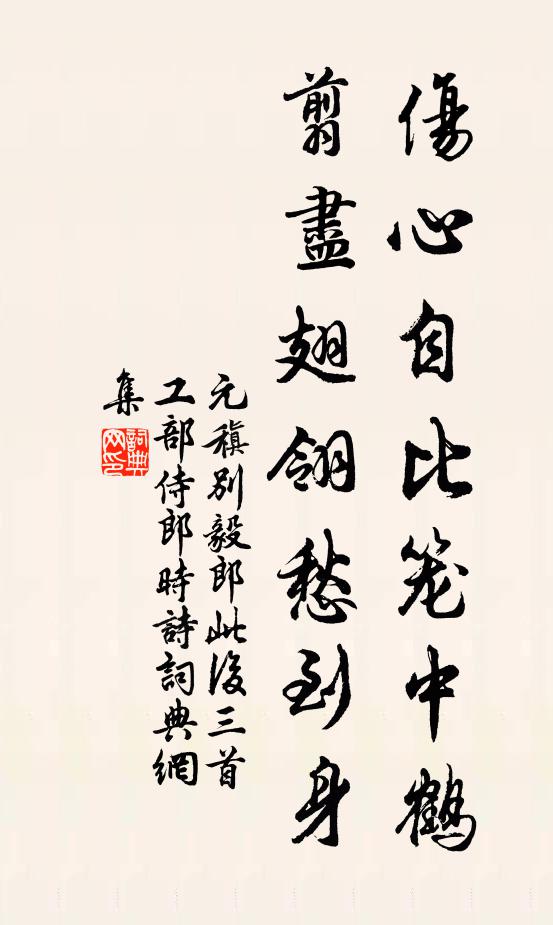 傷心自比笼中鶴
翦盡翅翎愁到身
元稹别毅郎此後三首
工部侍郎時詩詞典網
集
詞典網印